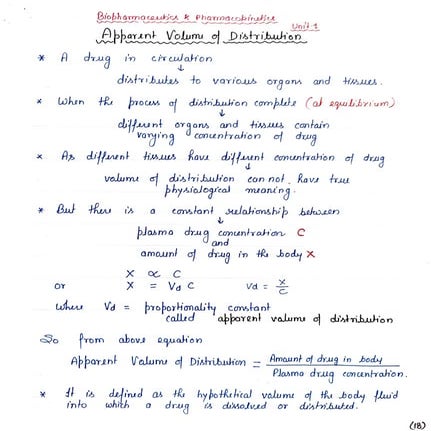 Biopharmaceutics & Pharmacokinetics
Unit-1
Apparent Volume of Distribution
* A drug in circulation
↓
distributes to various organs and tissues.
* When the process of distribution complete (at equilibrium)
↓
different organs and tissues contain
varying concentration of drug
* As different tissues have different concentration of drug
↓
volume of distribution can not have true
physiological meaning.
* But there is a constant relationship between
↓
plasma drug concentration C
and
amount of drug in the body X
X ∝ C
or X = Vd C Vd = X/C
where Vd = proportionality constant
called apparent volume of distribution
So from above equation
Apparent Volume of Distribution = Amount of drug in body / Plasma drug concentration.
* It is defined as the hypothetical volume of the body fluid
into which a drug is dissolved or distributed.
(18)